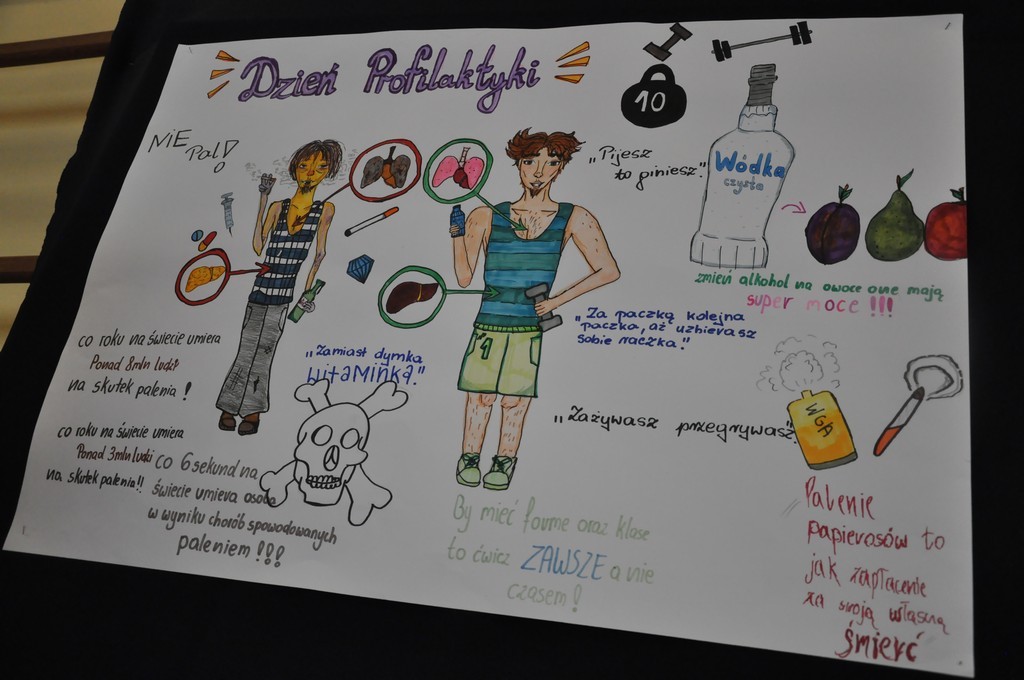 Dzień Profilaktyki
NIE
Pal!
10
„Pijesz
to giniesz."
Wódka
czysta
zmień alkohol na owoce one mają
super moce !!!
„Za paczką kolejna
paczka, aż uzbierasz
sobie raczka."
„Zamiast dymka
WITAMINKA."
co roku na świecie umiera
Ponad 8mln ludzi
na skutek palenia !
co roku na świecie umiera
Ponad 3mln ludzi
na skutek palenia!!
co 6 sekund na
świecie umiera osoba
w wyniku chorób spowodowanych
paleniem !!!
„Zażywasz przegrywasz"
WGA
By mieć forme oraz klase
to ćwicz ZAWSZE a nie
czasem!
Palenie
papierosów to
jak zapłacenie
za swoją własną
śmierć